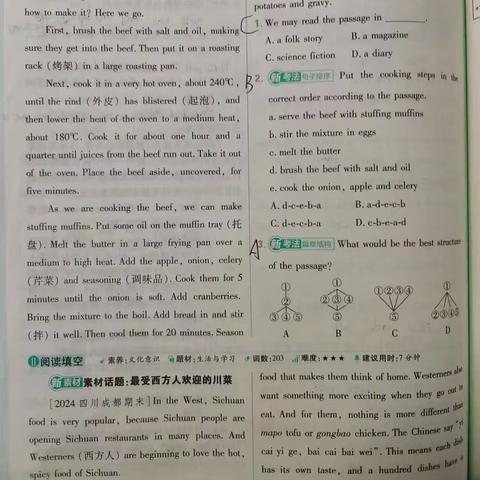 how to make it? Here we go.
First, brush the beef with salt and oil, making
sure they get into the beef. Then put it on a roasting
rack (烤架) in a large roasting pan.
Next, cook it in a very hot oven, about 240℃,
until the rind (外皮) has blistered (起泡), and
then lower the heat of the oven to a medium heat,
about 180℃. Cook it for about one hour and a
quarter until juices from the beef run out. Take it out
of the oven. Place the beef aside, uncovered, for
five minutes.
As we are cooking the beef, we can make
stuffing muffins. Put some oil on the muffin tray (托
盘). Melt the butter in a large frying pan over a
medium to high heat. Add the apple, onion, celery
(芹菜) and seasoning (调味品). Cook them for 5
minutes until the onion is soft. Add cranberries.
Bring the mixture to the boil. Add bread in and stir
(拌) it well. Then cool them for 20 minutes. Season
potatoes and gravy.
C 1. We may read the passage in ______.
A. a folk story B. a magazine
C. science fiction D. a diary
B 2. 新考法 句子排序 Put the cooking steps in the
correct order according to the passage.
a. serve the beef with stuffing muffins
b. stir the mixture in eggs
c. melt the butter
d. brush the beef with salt and oil
e. cook the onion, apple and celery
A. d-c-e-b-a B. a-d-e-c-b
C. d-e-c-b-a D. c-b-e-a-d
A 3. 新考法 篇章结构 What would be the best structure
of the passage?
① ①②③④ ①
② ②③④
③④⑤ ⑤ ⑤ ②③④⑤
A B C D
11 阅读填空 素养:文化意识 题材:生活与学习 词数:203 难度:★★★ 建议用时:7分钟
新素材 素材话题:最受西方人欢迎的川菜
[2024四川成都期末] In the West, Sichuan
food is very popular, because Sichuan people are
opening Sichuan restaurants in many places. And
Westerners (西方人) are beginning to love the hot,
spicy food of Sichuan.
food that makes them think of home. Westerners also
want something more exciting when they go out to
eat. And for them, nothing is more different than
mapo tofu or gongbao chicken. The Chinese say "yi
cai yi ge, bai cai bai wei". This means each dish
has its own taste, and a hundred dishes have a